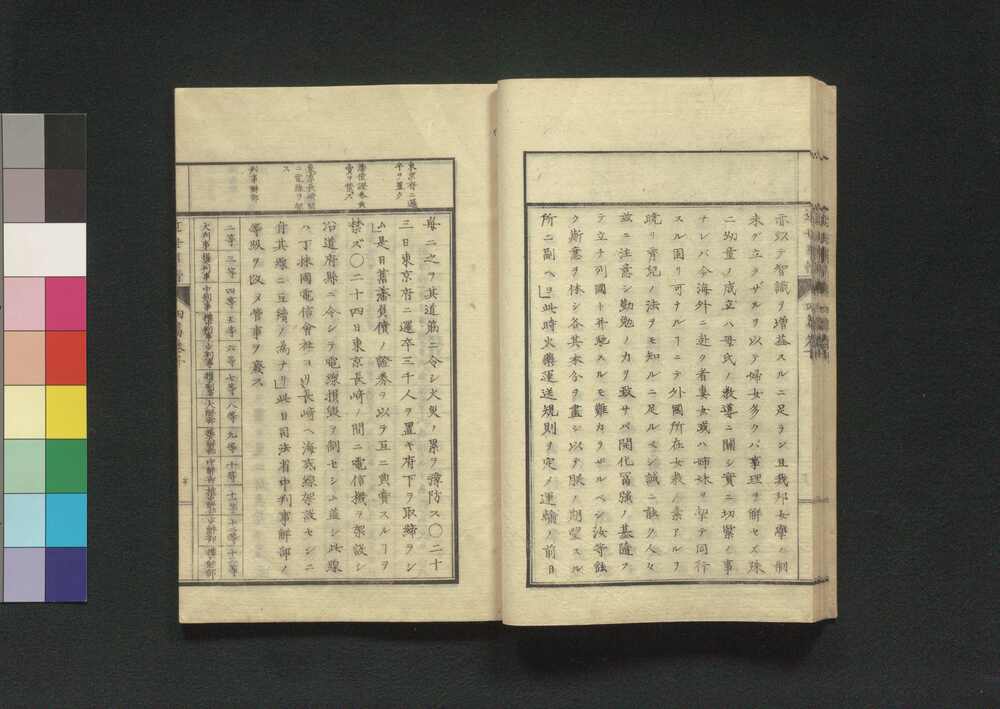 亦以テ智識ヲ増益スルニ足ラン且我邦女學ノ制
未タ立タザルヲ以テ婦女多クハ事理ヲ解セズ殊
ニ幼童ノ成立ハ母氏ノ教導ニ關シ實ニ切緊ノ事
ナレバ今海外ニ赴ク者妻女或ハ姉妹ヲ挈テ同行
スル固リ可ナル1ニテ外國所在女教ノ素アルヲ
曉リ育兒ノ法ヲモ知ルニ足ルベシ誠ニ能ク人々
玆ニ注意シ勤勉ノ力ヲ致サバ開化富強ノ基隨フ
テ立チ列國ト并馳スルモ難カラザルベシ汝等能
ク斯意ヲ体シ各其本分ヲ盡シ以テ朕ノ期望スル
所ニ副ヘヨ」此時火藥運送規則ヲ定ノ運輸ノ前日
東京府ニ邏
卒ヲ置ク
舊藩債證券賣
賣ヲ禁ズ
東京長崎間
ニ電線ヲ架
ス
判事解部
毎ニ之ヲ其道筋ニ令シ火災ノ累ヲ豫防ス〇二十
三日東京府ニ邏卒三千人ヲ置キ府下ヲ取締ラシ
ム是日舊藩負債ノ證券ヲ以テ互ニ賣スル1ヲ
禁ズ〇二十四日東京長崎ノ間ニ電信機ヲ架設シ
沿道府縣ニ令シテ電線損毀ヲ制セシム蓋シ此線
ハ丁抹國電信會社ヨリ長崎ヘ海底線架設セシニ
舟其線ニ互續ノ為ナリ」此日司法省中判事解部ノ
等級ヲ改メ管事ヲ廢ス
二等 三等 四等 五等 六等 七等 八等 九等 十等 十一等 十二等 十三等
大判事 權大判事 中判事 權中判事 少判事 權少判事 大解部 權大解部 中解部 權中解部 少解部 權少解部